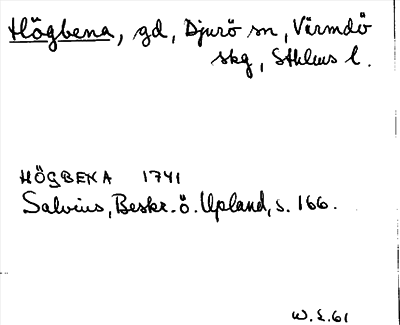 Högbena, gd, Djurö sn, Värmdö
skg, Sthlms l.
HÖGBENA 1741
Salvius, Beskr. ö. Upland, s. 166.
W.E.61